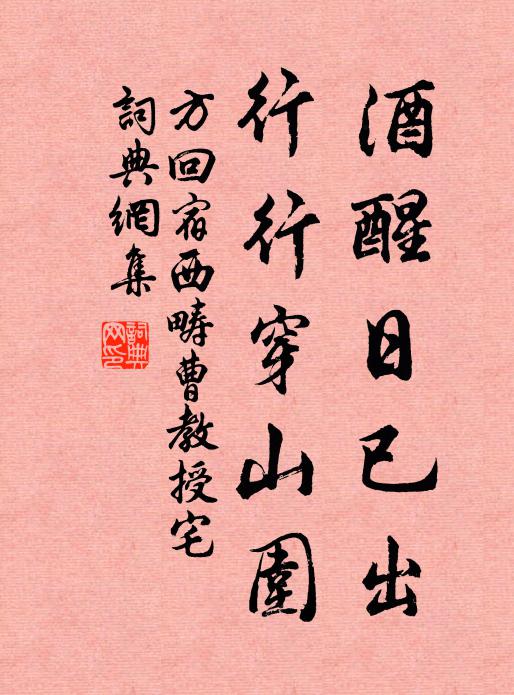 酒醒日已出
行行穿山圍
方回宿西疇曹教授宅
詞典網集
詞典網印